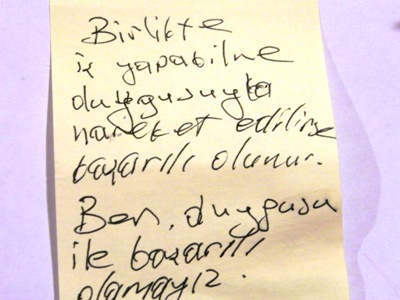 Birlikte
iş yapabilme
duygusuyla
hareket edilirse
başarılı olunur.
Ben, duygusu
ile başarılı
olamayız.